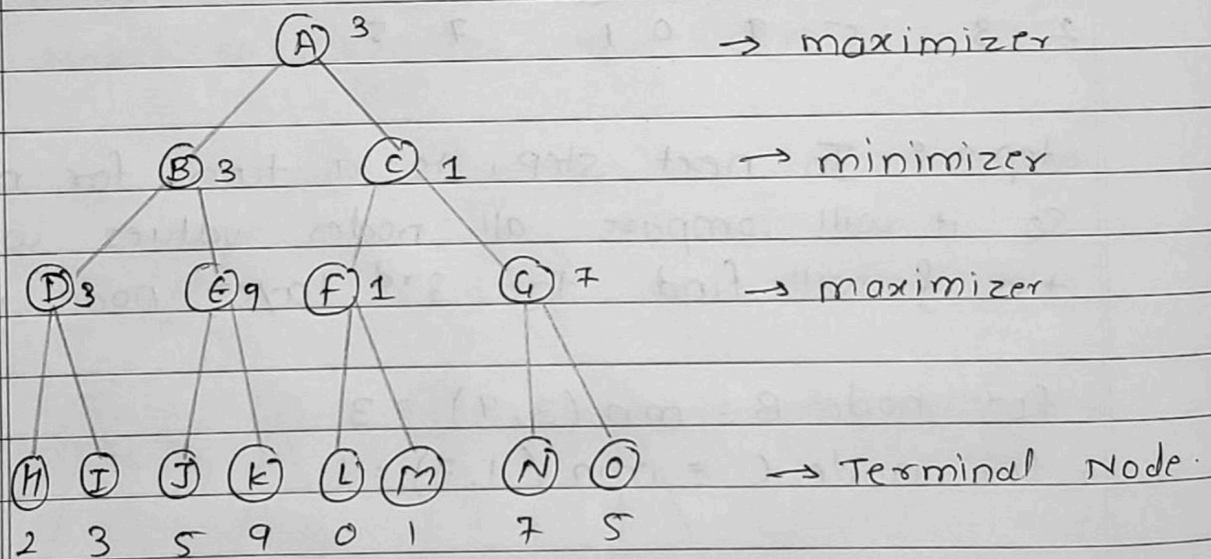 A 3 → maximizer
B 3 C 1 → minimizer
D 3 E 9 F 1 G 7 → maximizer
H I J K L M N O → Terminal Node.
2 3 5 9 0 1 7 5